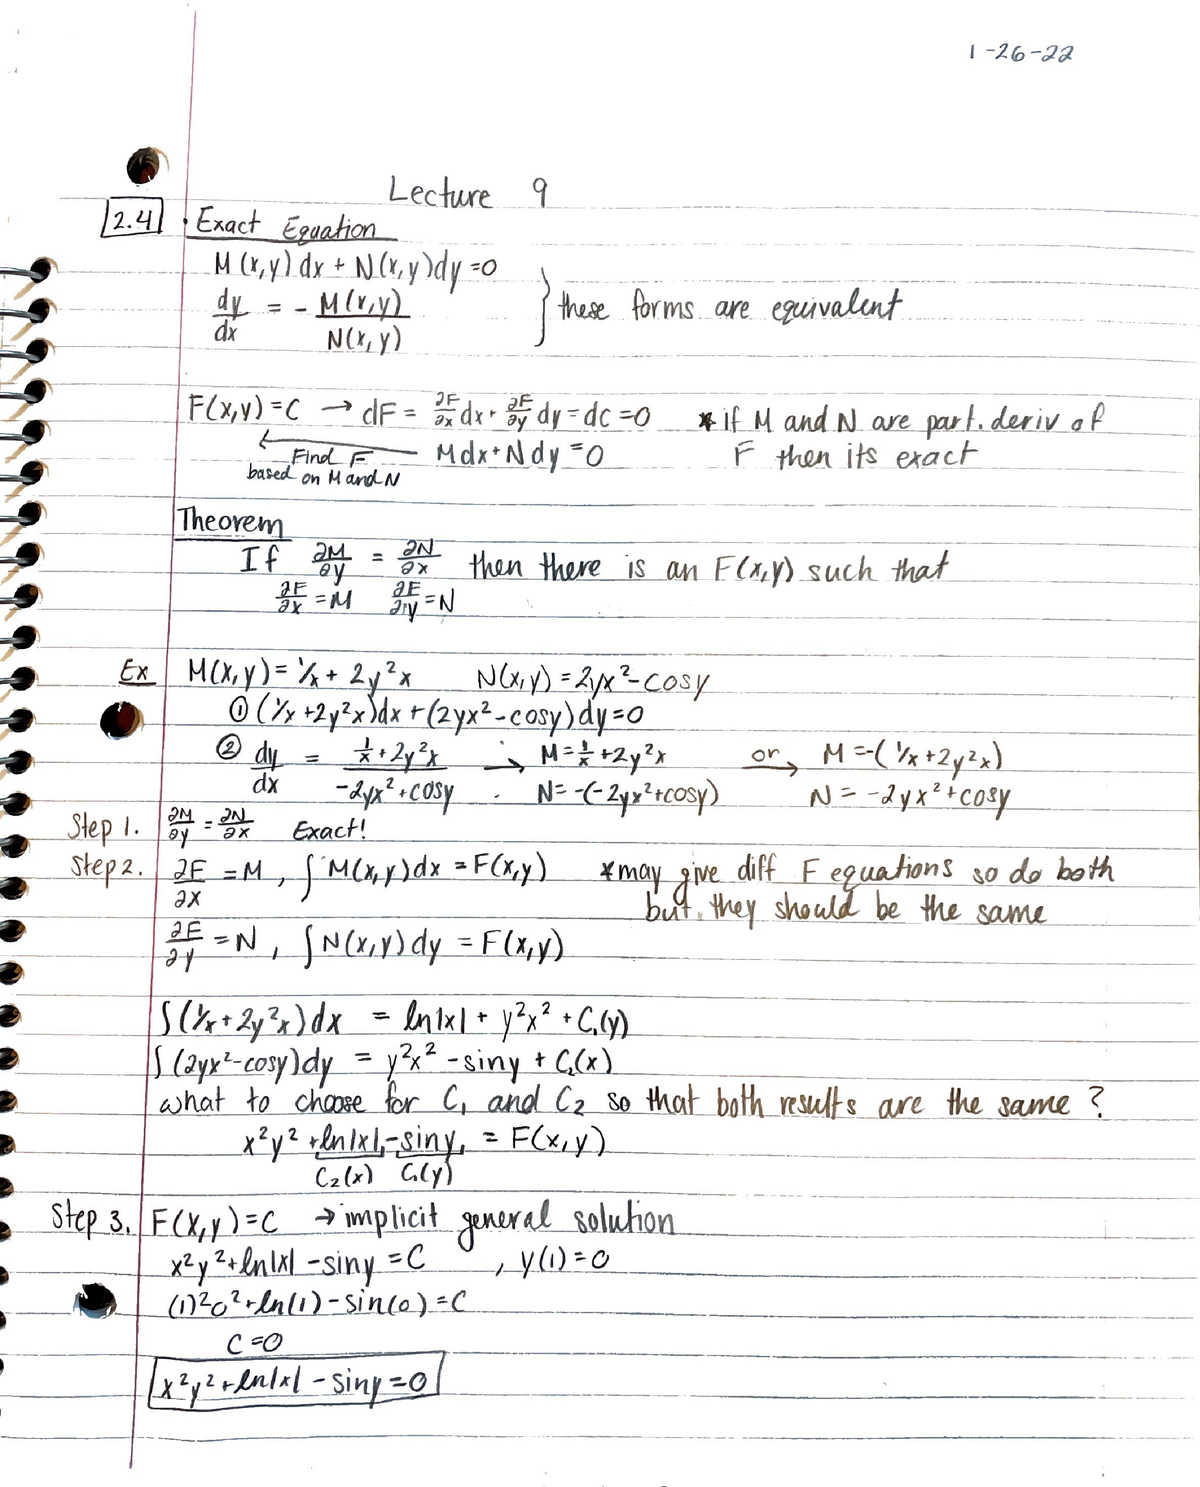 1-26-22
Lecture 9
2.4 · Exact Equation
M(x,y)dx + N(x,y)dy =0
dy/dx = - M(x,y)/N(x,y) } these forms are equivalent
F(x,y)=C → dF = ∂F/∂x dx + ∂F/∂y dy = dc =0 * if M and N are part. deriv of
← Find F based on M and N Mdx+Ndy=0 F then its exact
Theorem
If ∂M/∂y = ∂N/∂x then there is an F(x,y) such that
∂F/∂x =M ∂F/∂y =N
Ex M(x,y)= 1/x + 2y²x N(x,y) =2yx²-cosy
① (1/x +2y²x)dx + (2yx²-cosy)dy=0
② dy/dx = (1/x+2y²x)/(-2yx²+cosy) → M=1/x+2y²x or → M=-(1/x+2y²x)
N= -(-2yx²+cosy) N= -2yx²+cosy
Step 1. ∂M/∂y = ∂N/∂x Exact!
Step 2. ∂F/∂x =M, ∫M(x,y)dx =F(x,y) *may give diff F equations so do both
but, they should be the same
∂F/∂y =N, ∫N(x,y)dy =F(x,y)
∫(1/x+2y²x)dx = ln|x| + y²x² + C₁(y)
∫(2yx²-cosy)dy = y²x² -siny + C₂(x)
what to choose for C₁ and C₂ so that both results are the same ?
x²y² +ln|x| -siny = F(x,y)
C₂(x) C₁(y)
Step 3. F(x,y)=C → implicit general solution
x²y²+ln|x| -siny =C , y(1)=0
(1)²0²+ln(1)-sin(0)=C
C=0
x²y²+ln|x| -siny=0